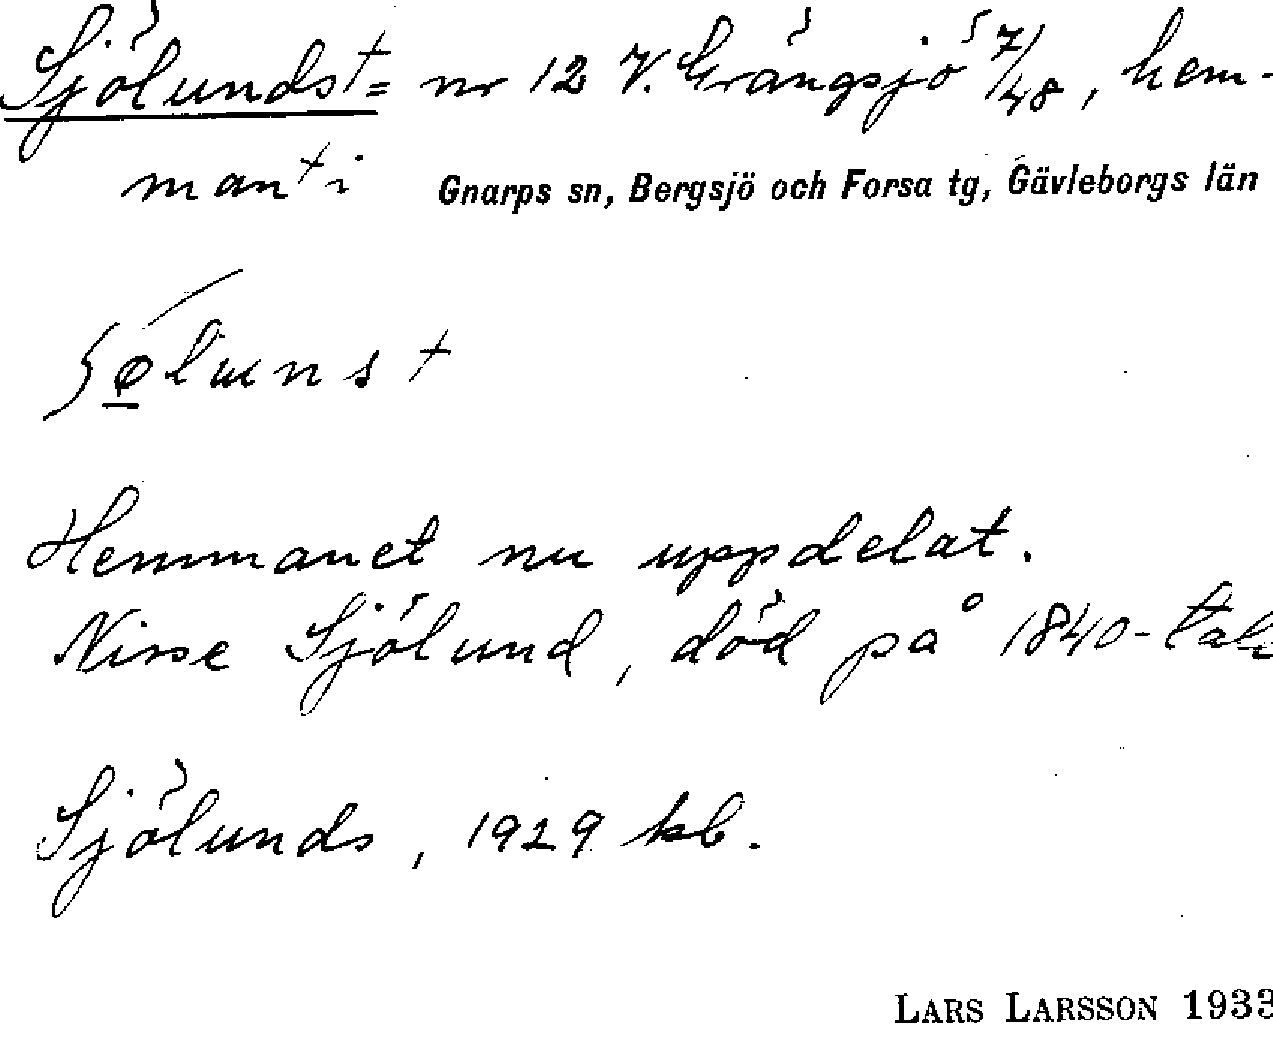 Sjölunds† = nr 12 V. Grängsjö 5 7/48, hem-
man† i Gnarps sn, Bergsjö och Forsa tg, Gävleborgs län
Hemmanet nu uppdelat.
Nisse Sjölund, död på 1840-tale
Sjölunds, 1929 kb.
LARS LARSSON 1933